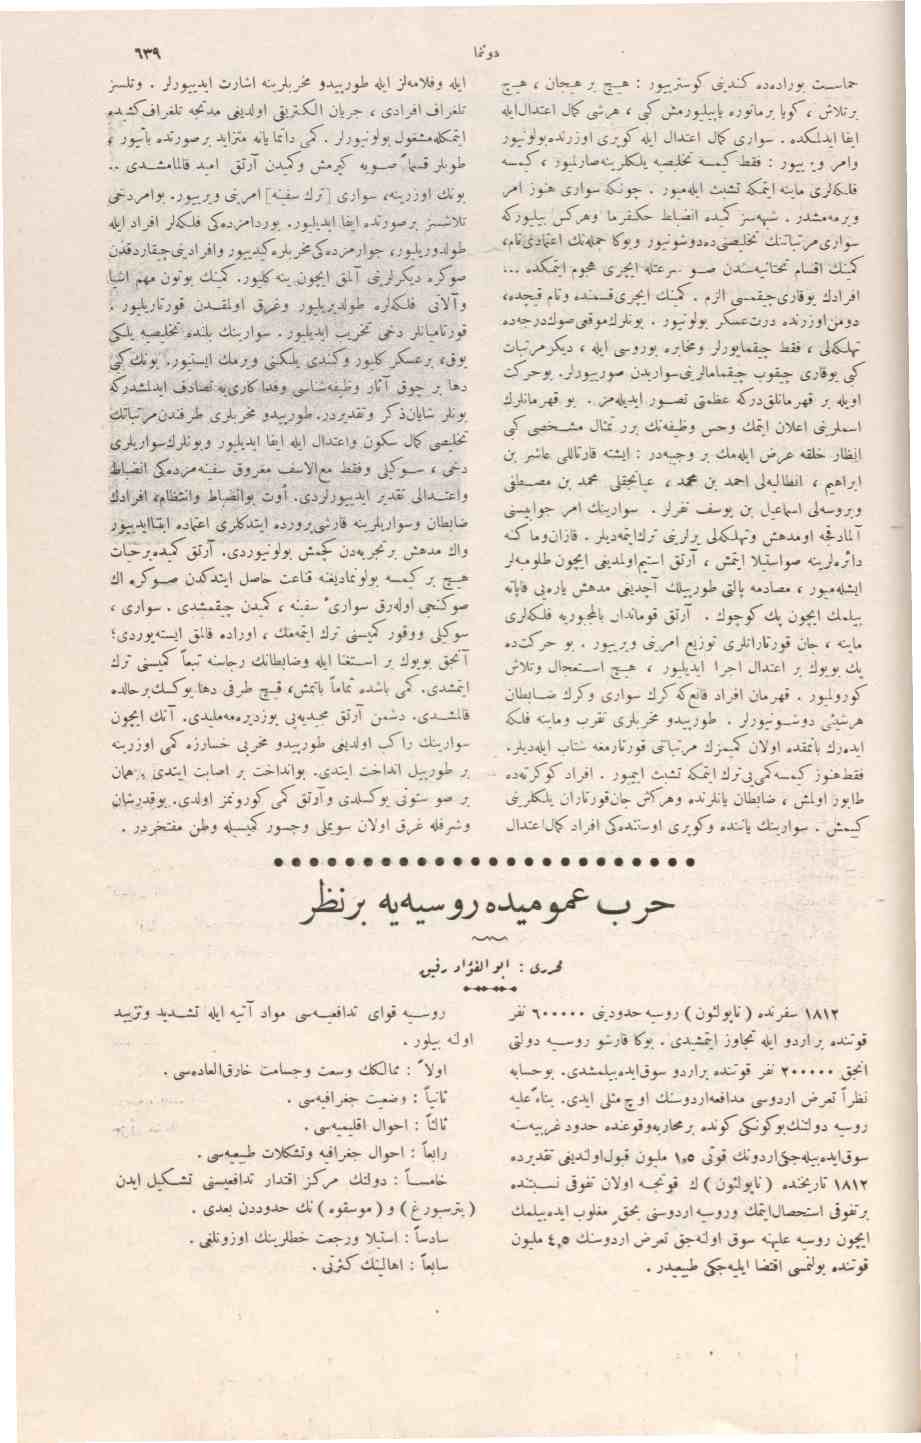 دوننما
٦٣٩
حماست بوراده‌ده كندینی كوستریيور : هیچ بر هیجان ، هیچ
برتلاش ، كویا برمانوره یاپیلیورمش كبی ، هرشی كمال اعتدال‌ایله
ایفا ایدلمكده . سواری كمال اعتدال ایله كوپری اوزرنده‌بولونیور
وامر ویریيور : فقط كیمسه تخلیصیه یلكلرینه‌صارلمیور ، كیمسه
فلكه‌لری ماینه ایتمكه تشبث ایله‌میور . چونكه سواری هنوز امر
ویرمه‌مشدر . شبهه‌سز كمیده انضباط حكمفرما وهركس بیلیوركه
سواری‌مرتباتنك تخلیصنی‌ده‌دوشونیور وبوكا جمله‌نك اعتمادی‌تام،
كمینك اقسام تحتانیه‌سندن صو سرعتله ایچری هجوم ایتمكده ...
افرادك یوقاری‌چیقمسی الزم . كمینك ایچری‌قسمنده وتام قیچده،
دومن‌اوزرنده درت‌عسكر بولونیور . بونلرك‌موقعی‌صوك‌درجه‌ده
تهلكه‌لی ، فقط چیقمایورلر ومخابره بوروسی ایله ، دیكرمرتبات
كبی یوقاری چیقوب چیقمامالرینی‌سواریدن صوریيورلر. بوحركت
اویله بر قهرمانلق‌دركه عظمتی تصور ایدیله‌مز . بو قهرمانلرك
اسملرینی اعلان ایتمك وحس وظیفه‌نك برر تمثال مشخصی كبی
انظار خلقه عرض ایله‌مك بر وجیبه‌در : ایشته قارتاللی عاشر بن
ابراهیم ، انطالیه‌لی احمد بن محمد ، عیانجقلی محمد بن مصطفی
وبروسه‌لی اسماعیل بن یوسف نفرلر . سوارینك امر جوابیسنی
آلمادقجه اومدهش وتهلكه‌لی یرلرینی ترك‌ایتمه‌دیلر. قازان‌وماكنه
دائره‌لرینه صواستیلا ایتمش ، آرتق استیم‌اولمدیغی ایچون طلومبه‌لر
ایشله‌میور ، مصادمه پالتی طورپیلك آچدیغی مدهش یاره‌یی قاپاته
بیلمك ایچون پك كوچوك . آرتق قوماندان بالمجبوریه فلكه‌لری
ماینه ، جان قورتارانلری توزیع امرینی ویریيور . بو حركت‌ده
پك بویوك بر اعتدال اجرا ایدیلیور ، هیچ استعجال وتلاش
كورولمیور . قهرمان افراد قانع‌كه كرك سواری وكرك ضابطان
هرشیئی دوشونیورلر . طورپیدو مخربلری تقرب وماینه فلكه
ایده‌رك باتمقده اولان كمیمزك مرتباتنی قورتارمغه شتاب ایله‌دیلر.
فقط‌هنوز كیمسه‌كمی‌یی‌ترك ایتمكه تشبث ایتمیور . افراد كوكرته‌ده
طابور اولمش ، ضابطان یانلرنده وهركس جان‌قورتاران یلكلرینی
كییمش . سوارینك یاننده وكوپری اوستنده‌كی افراد كمال‌اعتدال
ایله وفلامه‌لر ایله طورپیدو مخربلرینه اشارت ایدییورلر . وتلسز
تلغراف افرادی ، جریان الكتریقی اولدیغی مدتجه تلغراف‌كشیده
ایتمكله‌مشغول بولونیورلر . كمی دائما یانه متزاید برصورتده یاتیور ؛
طونلر قسماً صویه كیرمش وكمیدن آرتق امید قالمامشدی ..
بونك اوزرینه، سواری [ترك سفینه] امرینی ویریيور. بوامردخی
تلاشسز برصورتده ایفا ایدیلیور. بوردامزده‌كی فلكه‌لر افراد ایله
طولدوریلیور، جوارمزده‌كی‌مخربلره‌كیدییور وافرادینی‌چیقاردقدن
صوكره دیكرلرینی آلمق ایچون ینه كلیور. كمینك بوتون مهم اشیا
وآلاتی فلكه‌لره طولدیریلیور وغرق اولمقدن قورتاریلیور .
قورتامیانلر دخی تخریب ایدیلیور . سوارینك بلنده تخلیصیه یلكی
یوق، برعسكر كلیور وكندی یلكنی ویرمك ایستیور. بونك كبی
دها بر چوق آثار وظیفه‌شناسی وفداكاری‌یه تصادف ایدلمشدركه
بونلر شایان‌ذكر وتقدیردر. طورپیدو مخربلری طرفندن مرتباتك
تخلیصی كمال سكون واعتدال ایله ایفا ایدیلیور وبونلرك‌سواریلری
دخی ، سوكیلی وفقط مع‌الاسف مغروق سفینه‌مزده‌كی انضباط
واعتدالی تقدیر ایدییورلردی. أوت بوانضباط وانتظام، افرادك
ضابطان وسواریلرینه قارشی‌پرورده ایتدكلری اعتماده ابتناایدییور
واك مدهش برتجربه‌دن كچمش بولونیوردی. آرتق كمیده‌برحیات
هیچ بر كیمسه بولونمادیغنه قناعت حاصل ایتدكدن صوكره اك
صوكنجی اوله‌رق سواریٔ سفینه ، كمیدن چیقمشدی . سواری ،
سوكیلی ووقور كمیسنی ترك ایتمه‌مك ، اوراده قالمق ایسته‌یوردی؛
آنجق بویوك بر استغنا ایله وضابطانك رجاسنه تبعاً كمیسنی ترك
ایتمشدی. كمی باشده تماماً باتمش، قیچ طرفی دها یوكسك‌برحالده
قالمشدی. دشمن آرتق مجیدیه‌یی یوزدیره‌مه‌ملیدی. آنك ایچون
سوارینك راكب اولدیغی طورپیدو مخربی خسارزده كمی اوزرینه
بر طورپیل انداخت ایتدی. بوانداخت بر اصابت ایتدی . همان
بر صو ستونی یوكسلدی وآرتق كمی كورونمز اولدی. بوقدرشان
وشرفله غرق اولان سویملی وجسور كمیسیله وطن مفتخردر .
حرب عمومیده روسیه‌یه برنظر
محرری : ابو الفؤاد رفیق
١٨١٢ سفرنده ( ناپولئون ) روسیه حدودینی ٦٠٠٠٠٠ نفر
قوتنده براردو ایله تجاوز ایتمشیدی . بوكا قارشو روسیه دولتی
انجق ٢٠٠٠٠٠ نفر قوتنده براردو سوق‌ایده‌بیلمشدی. بوحسابه
نظراً تعرض اردوسی مدافعه‌اردوسنك اوچ مثلی ایدی. بناءً‌علیه
روسیه دولتنك‌بوكونكی كونده برمحاربه‌وقوعنده حدود غربیه‌سنه
سوق‌ایده‌بیله‌جكی‌اردونك قوتی ١٫٥ ملیون قبول‌اولندیغی تقدیرده
١٨١٢ تاریخنده (ناپولئون) ك قوتجه اولان تفوقی نسبتنده
برتفوقی استحصال‌ایتمك وروسیه اردوسنی بحق مغلوب ایده‌بیلمك
ایچون روسیه علیهنه سوق اولنه‌جق تعرض اردوسنك ٤٫٥ ملیون
قوتنده بولنمسی اقتضا ایلیه‌جكی طبیعیدر .
روسیه قوای تدافعیه‌سی مواد آتیه ایله تشدید وتزیید
اولنه بیلور .
اولاً : ممالكك وسعت وجسامت خارق‌العاده‌سی .
ثانیاً : وضعیت جغرافیه‌سی .
ثالثاً : احوال اقلیمیه‌سی .
رابعاً : احوال جغرافیه وتشكلات طبیعیه‌سی .
خامساً : دولتك مركز اقتدار تدافعیسنی تشكیل ایدن
(پترسبورغ) و (موسقوه) نك حدوددن بعدی .
سادساً : استیلا ورجعت خطلرینك اوزونلغی .
سابعاً : اهالینك كثرتی .